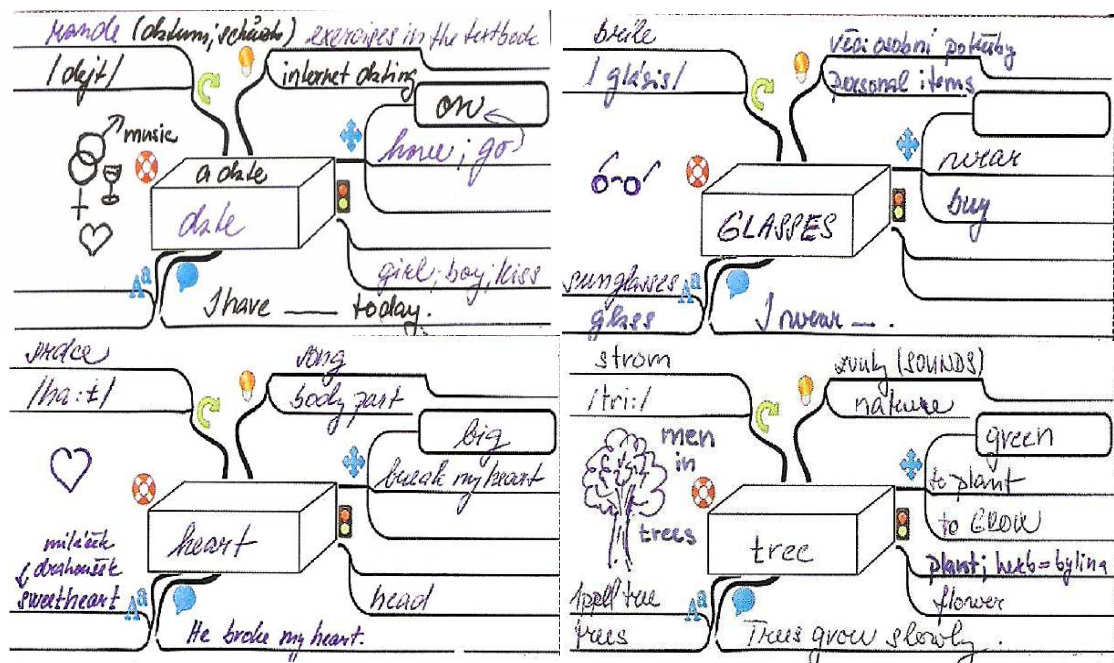 rande (datum, schůzka)
/dejt/
exercises in the textbook
internet dating
music
on
have ; go
a date
date
girl ; boy ; kiss
Aa
I have ___ today.
brýle
/glásis/
věci osobní potřeby
personal items
wear
buy
GLASSES
sunglasses
Aa
glass
I wear __.
srdce
/ha:t/
song
body part
big
break my heart
heart
miláček
drahoušek
sweetheart
Aa
head
He broke my heart.
strom
/tri:/
zvuky (SOUNDS)
nature
green
men
in
trees
to plant
to GROW
tree
plant; herb=bylina
flower
Aa
trees
Trees grow slowly.